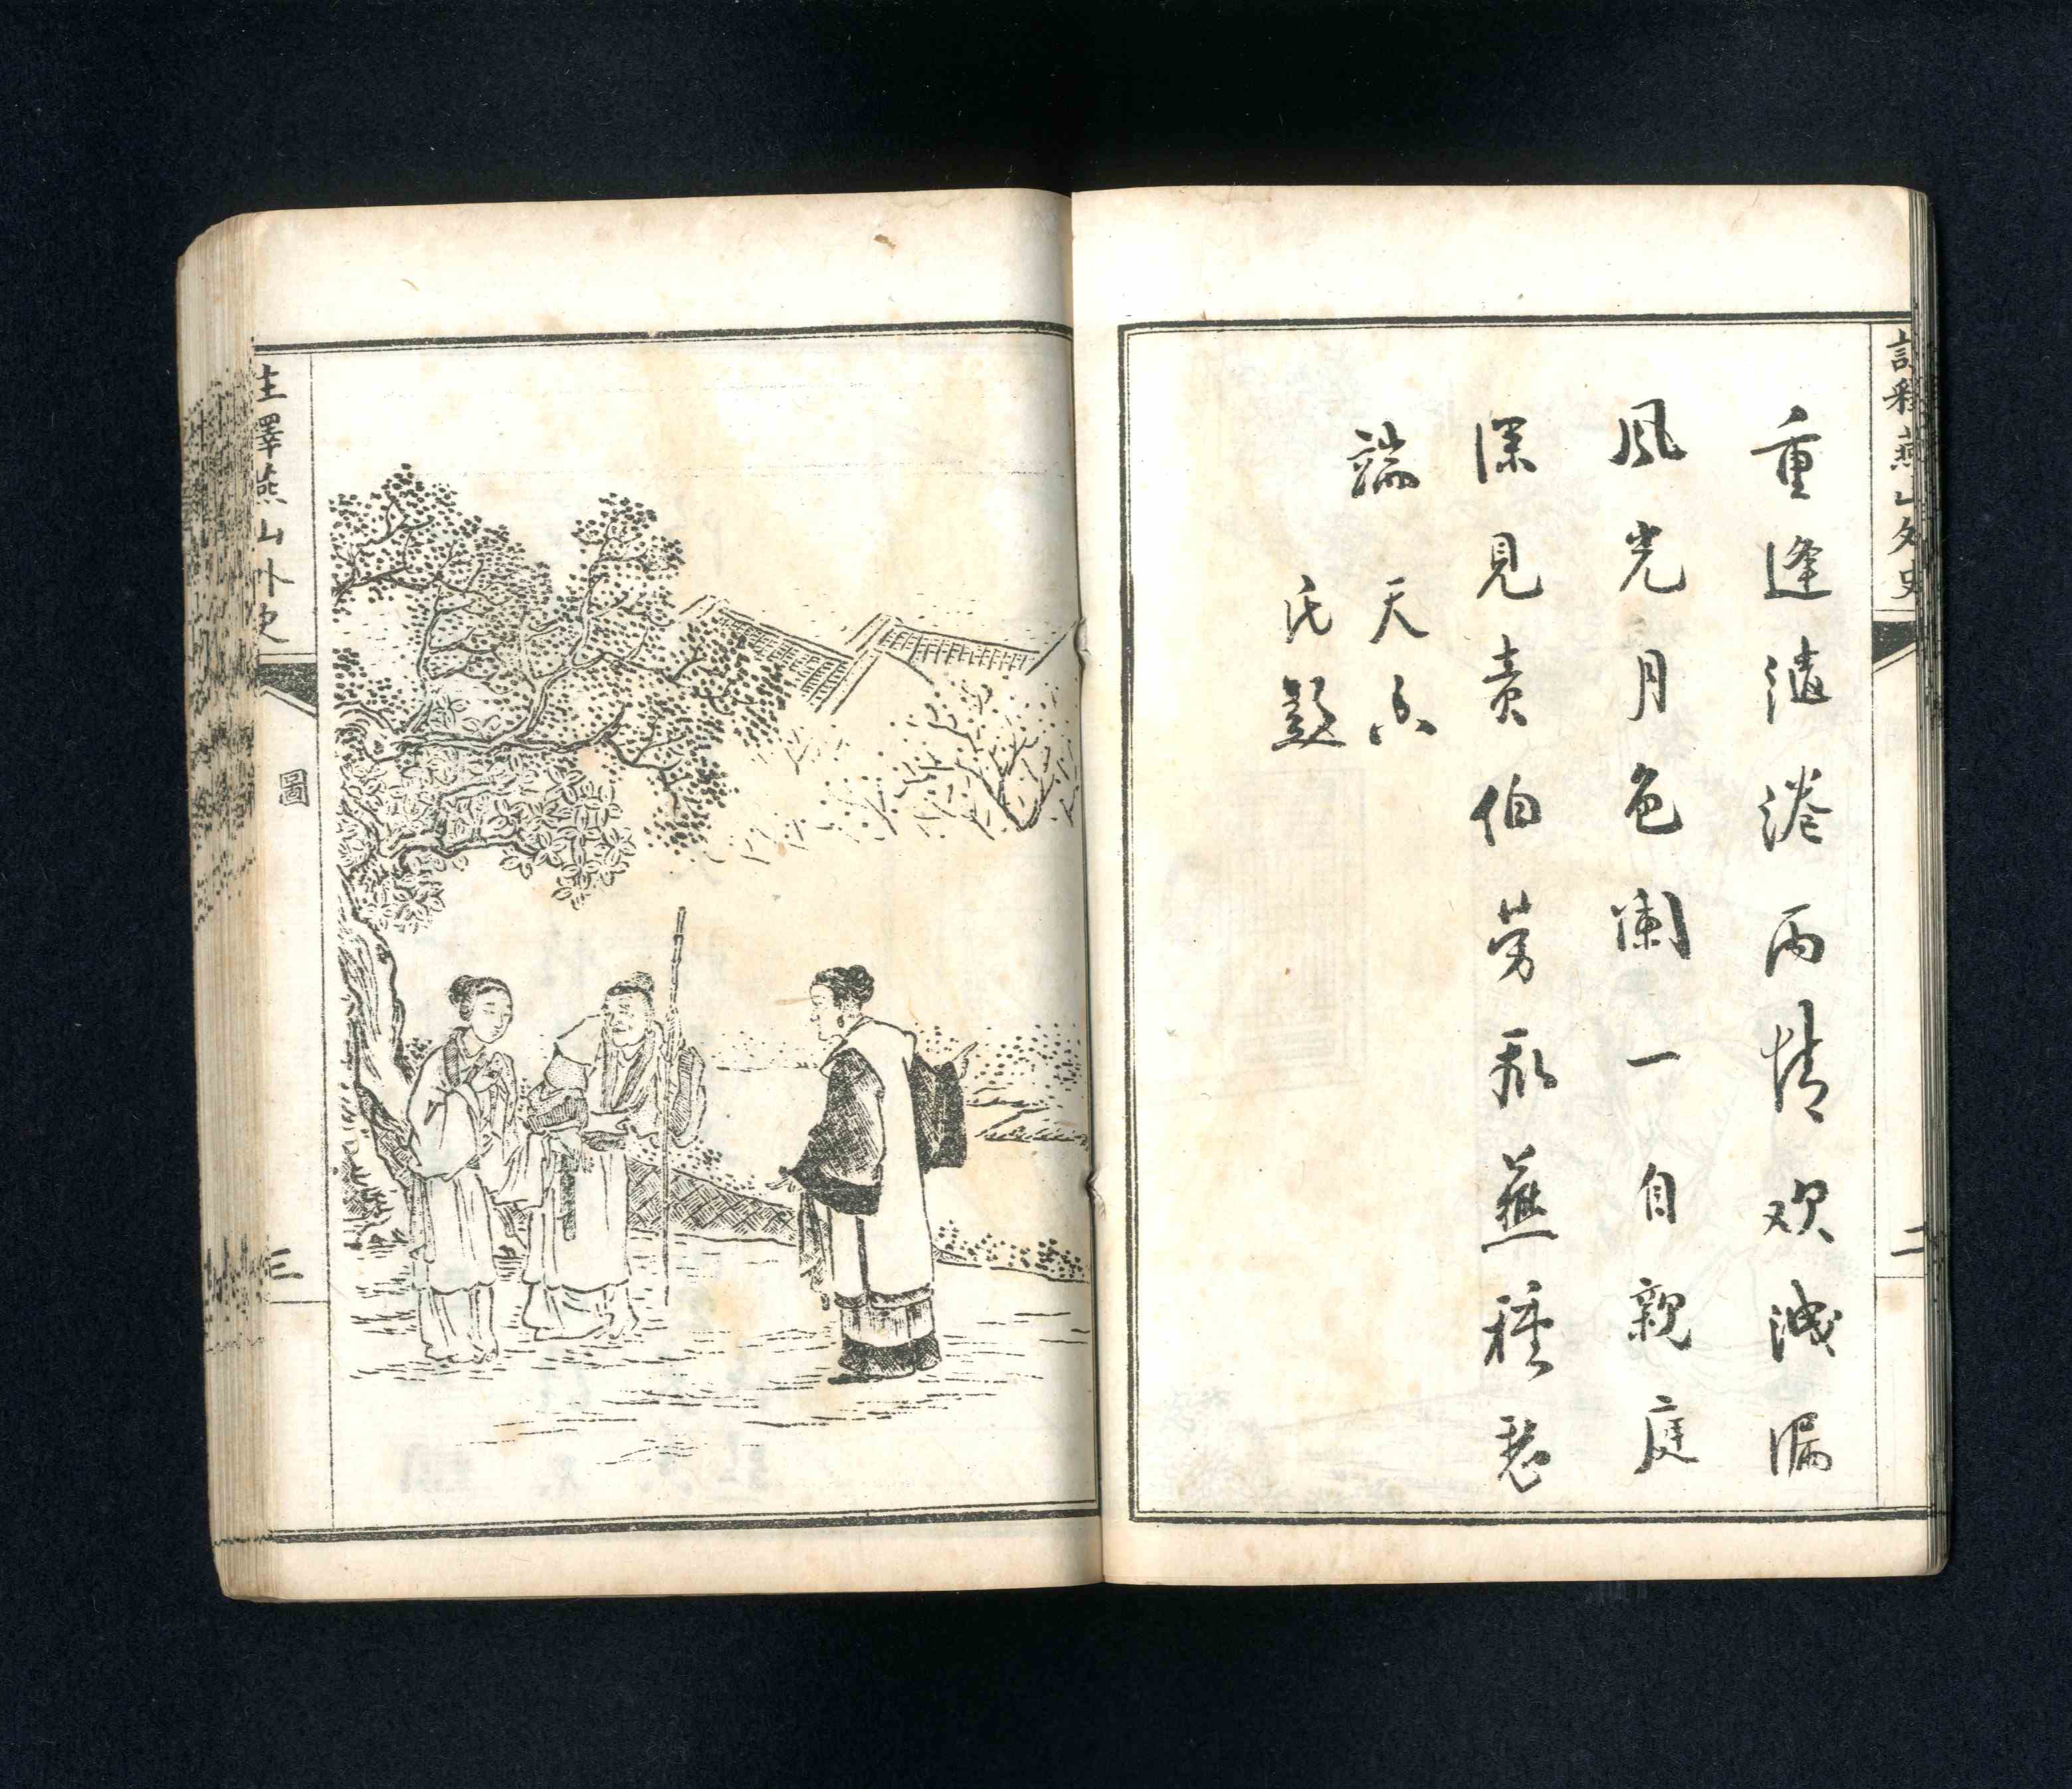 註釋燕山外史
二
重逢繾綣兩情歡洩漏
風光月色闌一自親庭
深見責伯勞飛燕種愁
端
天
氏題
註釋燕山外史
圖
三